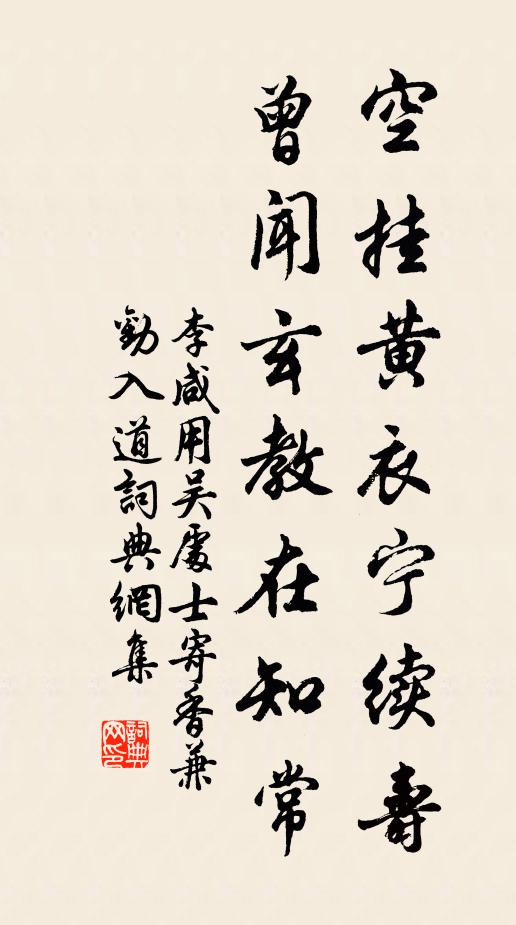 空挂黄衣宁续壽
曾闻玄教在知常
李咸用吴處士寄香兼
勸入道詞典網集
詞典
网印